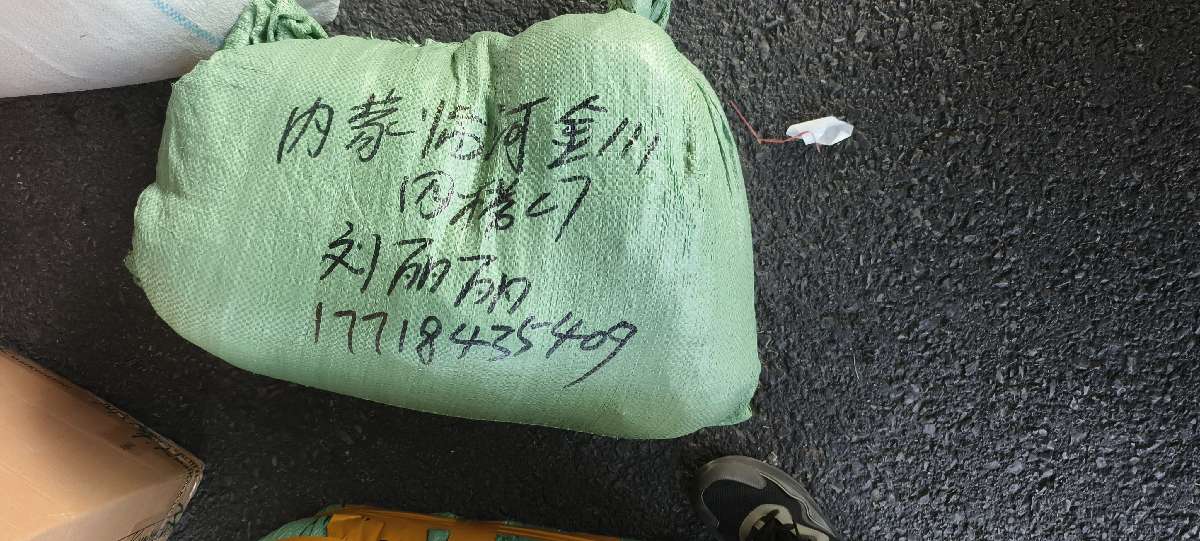 内蒙临河金川
因塔27
刘丽丽
17718435409